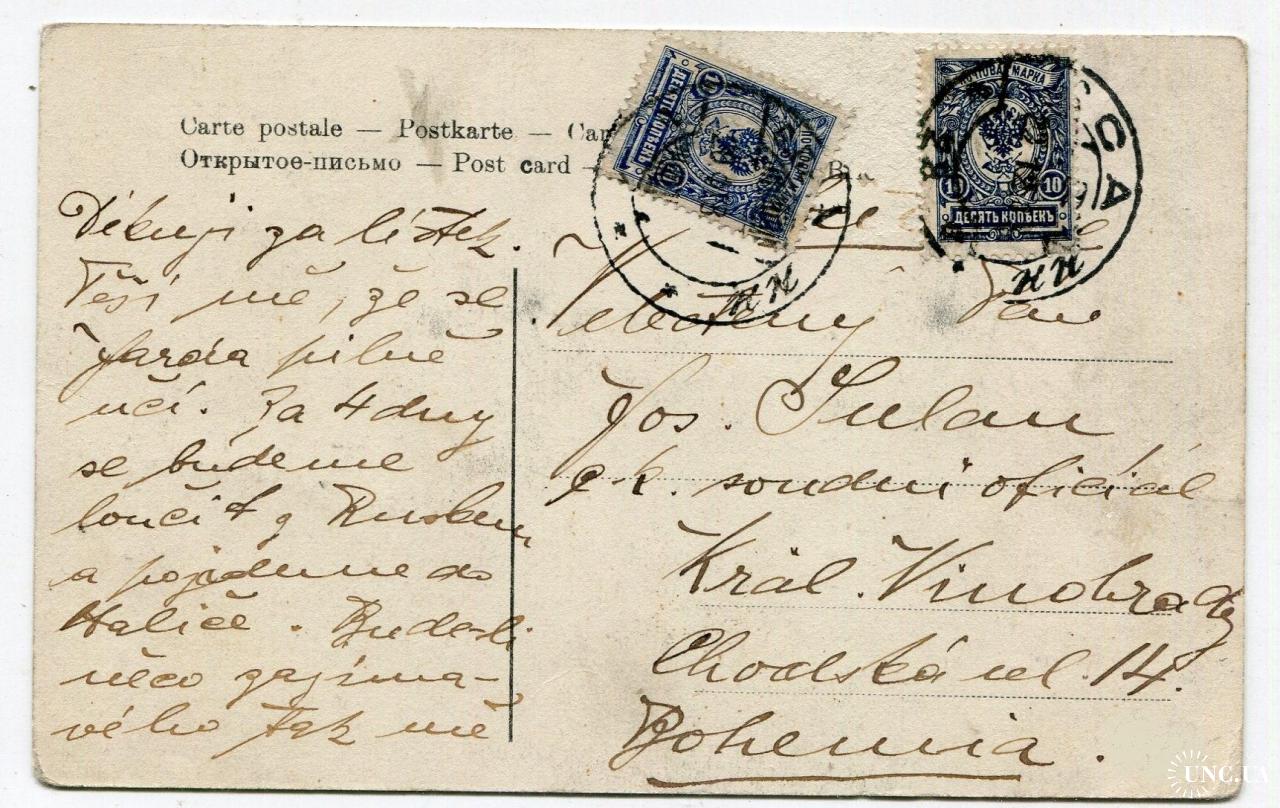 Carte postale — Postkarte — Car
Открытое-письмо — Post card —
ПОЧТОВАЯ МАРКА
10 10
ДЕСЯТЬ КОПѢЕКЪ
ПОЧТОВАЯ МАРКА
10 10
ДЕСЯТЬ КОПѢЕКЪ
ССА
Děkuji za lístek.
Těší mě, že se
Jarda pilně
učí. Za 4 dny
se budeme
loučit z Ruskem
a pojedeme do
Haliče. Bude-li
něco zajíma-
vého tak mě
Velectěný Pan
Jos. Sulan
c.k. soudní oficiál
Král. Vinohrady
Chodská ul. 14.
Bohemia.
UNC.UA